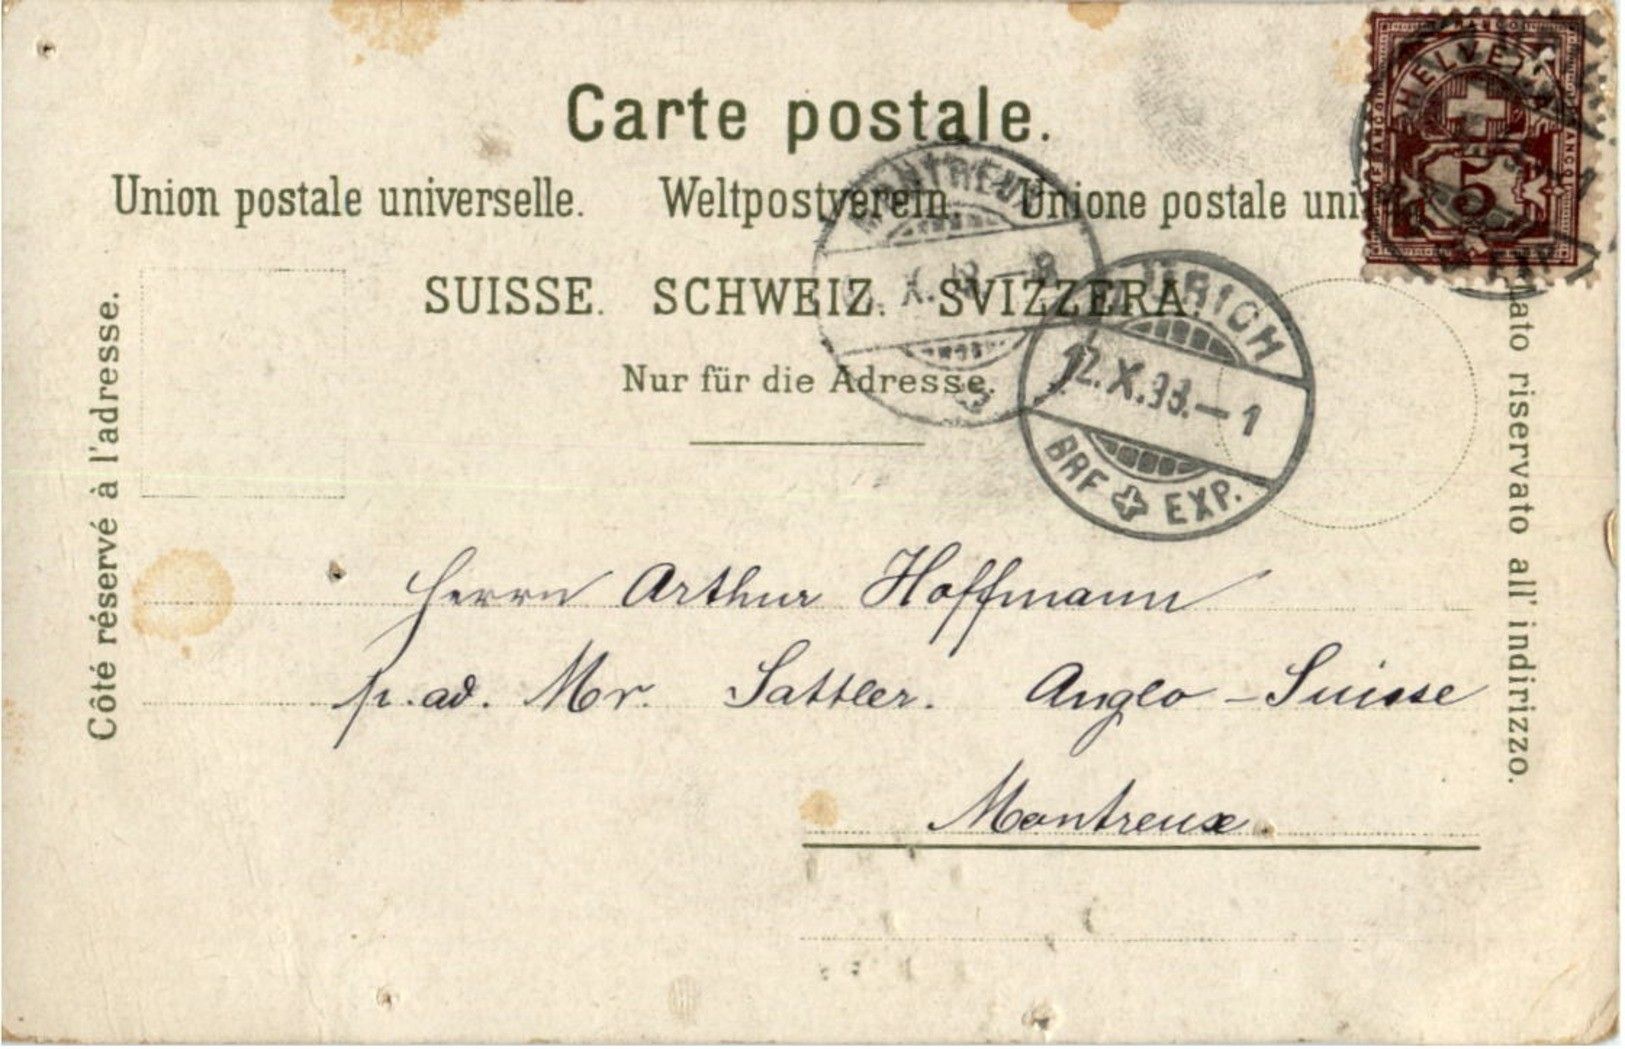 Carte postale.
Union postale universelle. Weltpostverein. Unione postale uni
SUISSE. SCHWEIZ. SVIZZERA.
Nur für die Adresse.
Côté réservé à l'adresse.
lato riservato all' indirizzo.
FRANCO
HELVETIA
5
MONTREUX
X. 98 – 8
ZÜRICH
12. X. 98. – 1
BRF EXP.
Herrn Arthur Hoffmann
p. ad. Mr. Sattler. Anglo – Suisse
Montreux.